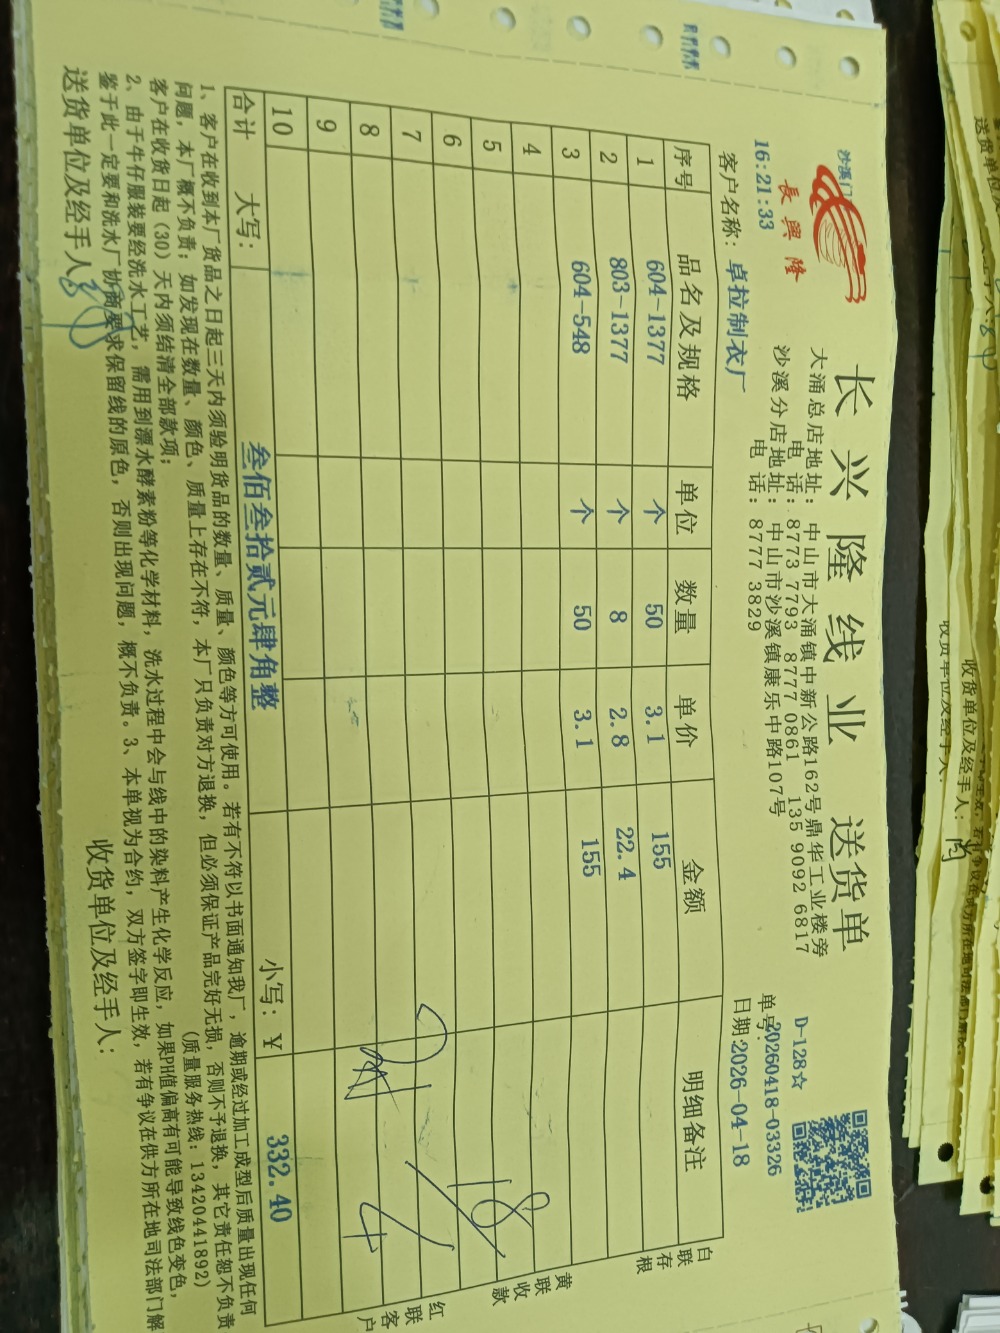 沙溪门
長興隆
长兴隆线业 送货单
大涌总店地址：中山市大涌镇中新公路162号鼎华工业楼旁
电 话：8773 7793 8777 0861 135 9092 6817
沙溪分店地址：中山市沙溪镇康乐中路107号
电 话：8777 3829
D-128☆
单号：20260418-03326
16:21:33
日期：2026-04-18
客户名称：卓拉制衣厂
序号 品名及规格 单位 数量 单价 金额 明细备注
1 604-1377 个 50 3.1 155
2 803-1377 个 8 2.8 22.4
3 604-548 个 50 3.1 155
4
5
6
7
8
9
10
合计 大写：叁佰叁拾贰元肆角整 小写：¥ 332.40
18/4
白联存根
黄联收款
红联客户
1、客户在收到本厂货品之日起三天内须验明货品的数量、质量、颜色等方可使用。若有不符以书面通知我厂，逾期或经过加工成型后质量出现任何
问题，本厂概不负责；如发现在数量、颜色、质量上存在不符，本厂只负责对方退换，但必须保证产品完好无损，否则不予退换，其它责任恕不负责
客户在收货日起（30）天内须结清全部款项； （质量服务热线：13420441892）
2、由于牛仔服装要经洗水工艺，需用到漂水酵素粉等化学材料，洗水过程中会与线中的染料产生化学反应，如果PH值偏高有可能导致线色变色，
鉴于此一定要和洗水厂协商要求保留线的原色，否则出现问题，概不负责。3、本单视为合约，双方签字即生效，若有争议在供方所在地司法部门解
送货单位及经手人： 收货单位及经手人：
收货单位及经手人：
收货单位及经手人：